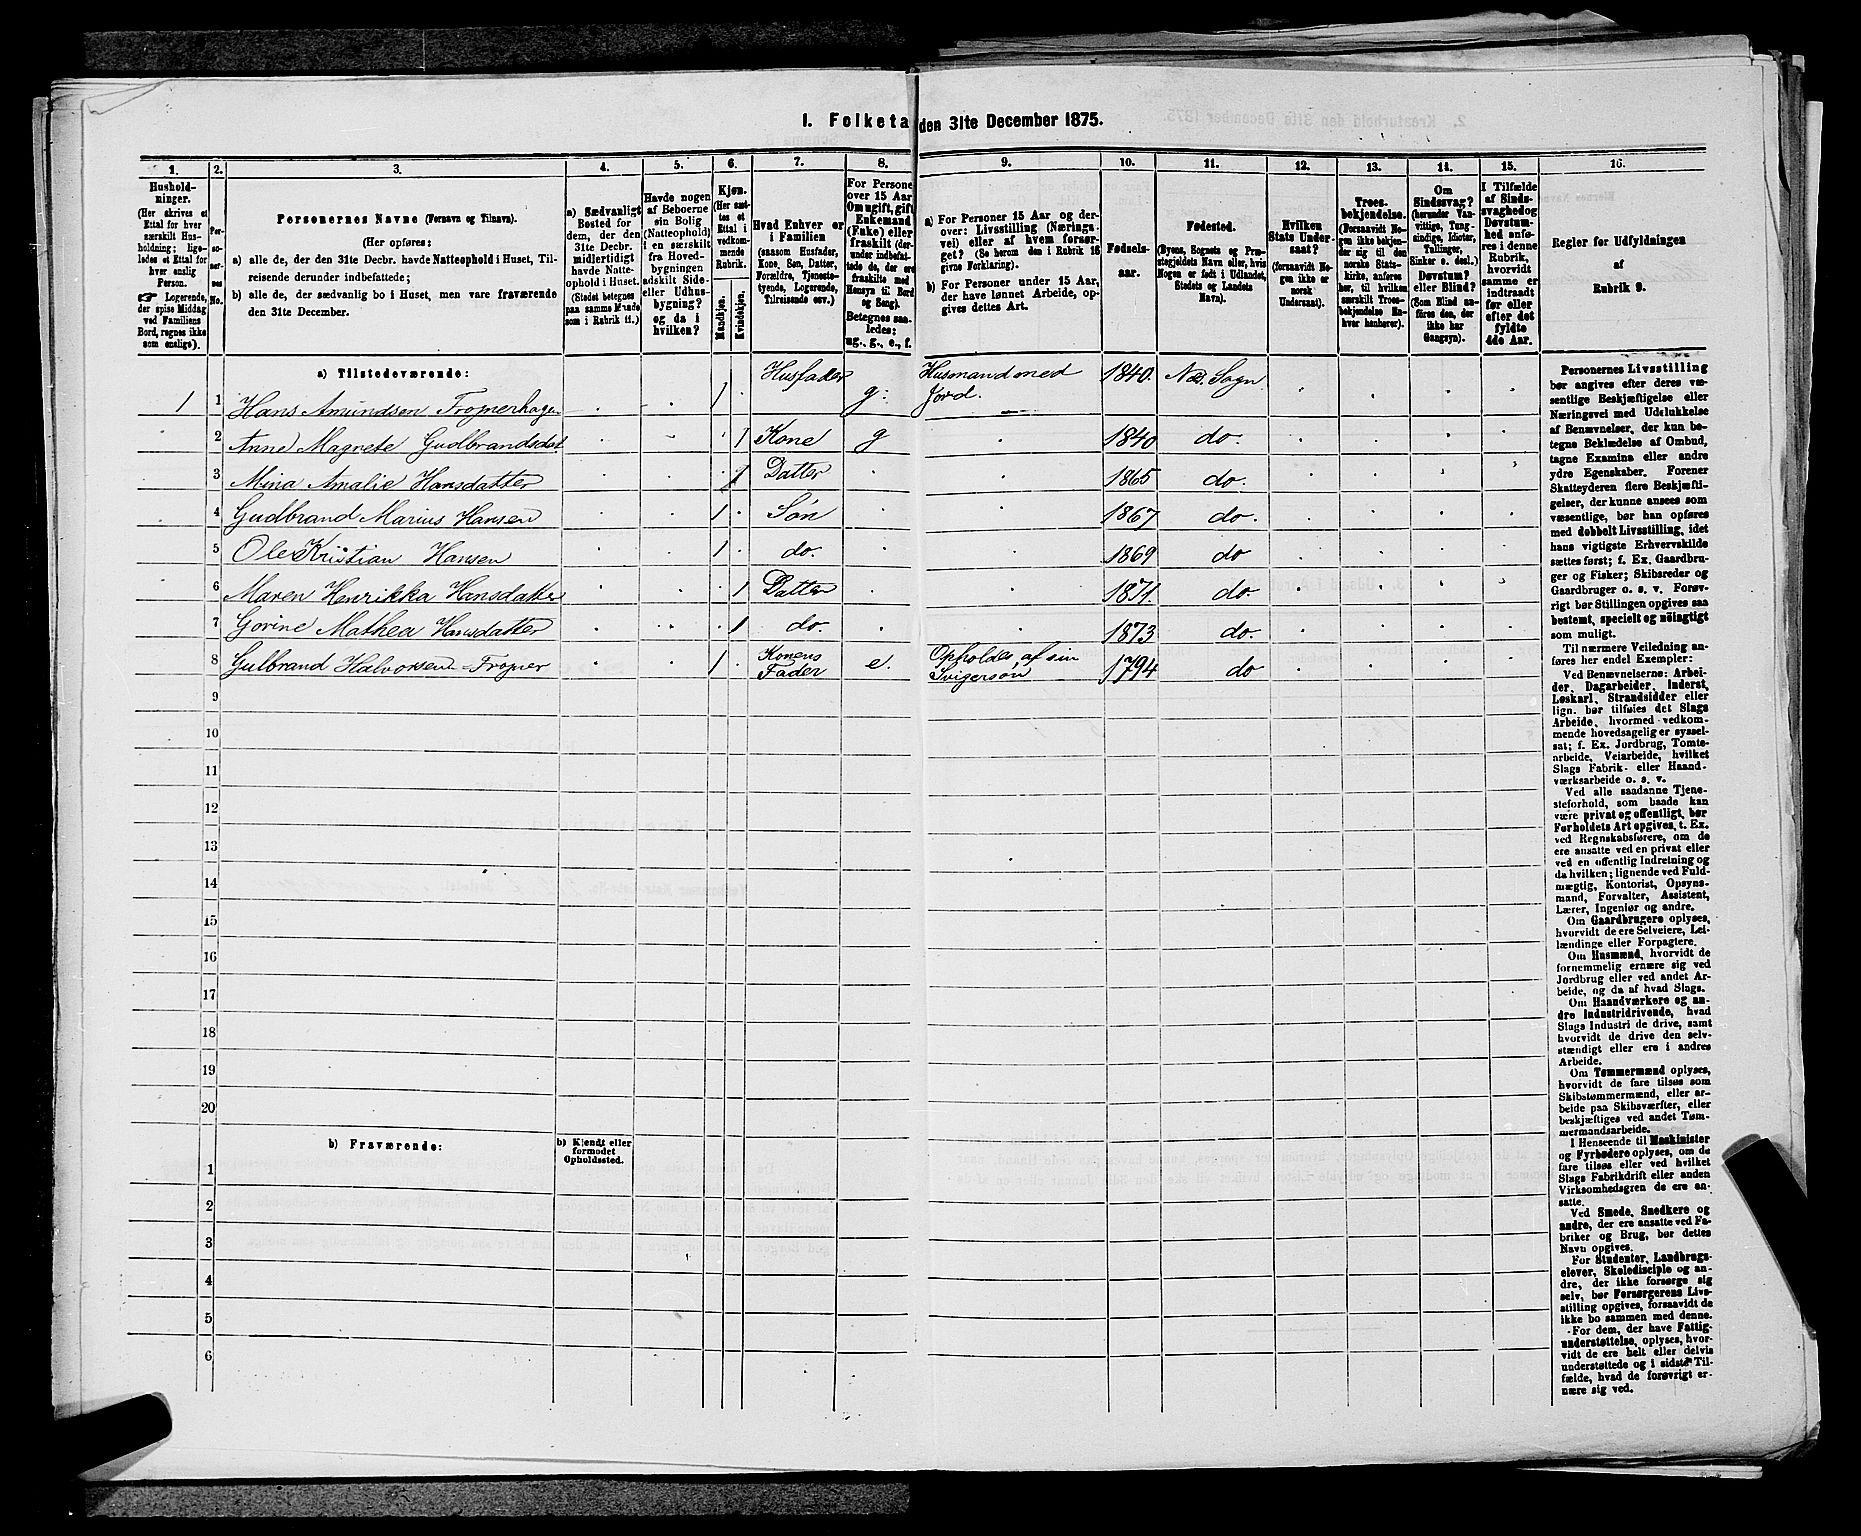 1. Folketa den 31te December 1875.
1. 2. 3. 4. 5. 6. 7. 8. 9. 10. 11. 12. 13. 14. 15. 16.
Hushold-
ninger.
(Her skrives et
Ettal for hver
særskilt Hus-
holdning; lige-
ledes et Ettal for
hver enslig
Person.
☞ Logerende,
der spise Middag
ved Familiens
Bord, regnes ikke
som enslige).
Per-
so-
ner-
nes
No.
Personernes Navne (Fornavn og Tilnavn).
(Her opføres:
a) alle de, der den 31te Decbr. havde Natteophold i Huset, Til-
reisende derunder indbefattede;
b) alle de, der sædvanlig bo i Huset, men vare fraværende
den 31te December).
a) Sædvanligt
Bosted for
dem, der den
31te Decbr.
midlertidigt
havde Natte-
ophold i Huset.
(Stedet betegnes
paa samme Maade
som i Rubrik 11.)
Havde nogen
af Beboerne
sin Bolig
(Natteophold)
i en særskilt
fra Hoved-
bygningen
adskilt Side-
eller Udhus-
bygning?
og da i
hvilken?
Kjøn.
(Her sæt-
tes et
Ettal i
vedkom-
mende
Rubrik.
Mandkjøn.
Kvindekjøn.
Hvad Enhver er
i Familien
(saasom Husfader,
Kone, Søn, Datter,
Forældre, Tjeneste-
tyende, Logerende,
Tilreisende osv.)
For Persone
over 15 Aar
Om ugift, gift
Enkemand
(Enke) eller
fraskilt (der-
under indbefat-
tede de, der ere
fraskilte med
Hensyn til Bord
og Seng).
Betegnes saa-
ledes:
ug., g., e., f.
a) For Personer 15 Aar og der-
over: Livsstilling (Nærings-
vei) eller af hvem forsør-
get? (Se herom den i Rubrik 16
givne Forklaring).
b) For Personer under 15 Aar,
der have lønnet Arbeide, op-
gives dettes Art.
Fødsels-
aar.
Fødested.
(Byens, Sognets og Præ-
stegjeldets Navn eller, hvis
Nogen er født i Udlandet,
Stedets og Landets
Navn).
Hvilken
Stats Under-
saat?
(forsaavidt No-
gen ikke er
norsk
Undersaat).
Troes-
bekjendelse.
(Forsaavidt No-
gen ikke bekjen-
der sig til den
norske Stats-
kirke, anføres
her, til hvilken
særskilt Troes-
bekjendelse En-
hver henhører).
Om
Sindssvag?
(herunder Van-
vittige, Tung-
sindige, Idioter,
Tullinger,
Sinker o. desl.)
Døvstum?
eller Blind?
(Som Blind an-
føres den, der
ikke har
Gangsyn).
I Tilfælde
af Sinds-
svaghed og
Døvstum-
hed anfø-
res i denne
Rubrik,
hvorvidt
samme er
indtraadt
før eller
efter det
fyldte
4de Aar.
Regler for Udfyldningen
af
Rubrik 9.
a) Tilstedeværende:
1 1 Hans Amundsen Trognerhagen 1 Husfader g. Husmand med Jord. 1840. Næs Sogn
2 Anne Magrete Gudbrandsdat. 1 Kone g 1840 do.
3 Mina Amalie Hansdatter 1 Datter 1865 do.
4 Gudbrand Marius Hansen 1 Søn 1867 do.
5 Ole Kristian Hansen 1 do. 1869 do
6 Maren Henrikka Hansdatter 1 Datter 1871. do.
7 Gorine Mathea Hansdatter 1 do. 1873 do.
8 Gulbrand Halvorsen Trogner 1 Konens Fader e. Opholdes af sin Svigersøn 1794 do
9
10
11
12
13
14
15
16
17
18
19
20
b) Fraværende:
b) Kjendt eller
formodet
Opholdssted.
1
2
3
4
5
6
Personernes Livsstilling
bør angives efter deres væ-
sentlige Beskjæftigelse eller
Næringsvei med Udelukkelse
af Benævnelser, der kun be-
tegne Beklædelse af Ombud,
tagne Examina eller andre
ydre Egenskaber. Forener
Skatteyderen flere Beskjæfti-
gelser, der kunne ansees som
væsentlige, bør han opføres
med dobbelt Livsstilling, idet
hans vigtigste Erhvervskilde
sættes først; f. Ex. Gaardbru-
ger og Fisker; Skibsreder og
Gaardbruger o. s. v. Forøv-
rigt bør Stillingen opgives saa
bestemt, specielt og nøiagtigt
som muligt.
Til nærmere Veiledning an-
føres her endel Exempler:
Ved Benævnelserne: Arbei-
der, Dagarbeider, Inderst,
Løskarl, Strandsidder eller
lign. bør tilføies det Slags
Arbeide, hvormed vedkom-
mende hovedsagelig er syssel-
sat; f. Ex. Jordbrug, Tomte-
arbeide, Veiarbeide, hvilket
Slags Fabrik- eller Haand-
værksarbeide o. s. v.
Ved alle saadanne Tjene-
steforhold, som baade kan
være privat og offentligt, bør
Forholdets Art opgives, t. Ex.
ved Regnskabsførere, om de
ere ansatte ved en privat eller
ved en offentlig Indretning og
da hvilken; lignende ved Fuld-
mægtig, Kontorist, Opsyns-
mand, Forvalter, Assistent,
Lærer, Ingeniør og andre.
Om Gaardbrugere oplyses,
hvorvidt de ere Selveiere, Lei-
lændinge eller Forpagtere.
Om Husmænd, hvorvidt de
fornemmelig ernære sig ved
Jordbrug eller ved andet Ar-
beide, og da af hvad Slags.
Om Haandværkere og an-
dre Industridrivende, hvad
Slags Industri de drive, samt
hvorvidt de drive den selv-
stændigt eller ere i andres
Arbeide.
Om Tømmermænd oplyses,
hvorvidt de fare tilsøs som
Skibstømmermænd, eller ar-
beide paa Skibsværfter, eller
beskjæftiges ved andet Tøm-
mermandsarbeide.
I Henseende til Maskinister
og Fyrbødere oplyses, om de
fare tilsøs eller ved hvilket
Slags Fabrikdrift eller anden
Virksomhedsgren de ere an-
satte.
Ved Smede, Snedkere og
andre, der ere ansatte ved Fa-
briker og Brug, bør dettes
Navn opgives.
For Studenter, Landbrugs-
elever, Skoledisciple og an-
dre, der ikke forsørge sig
selv, bør Forsørgerens Livs-
stilling opgives, forsaavidt de
ikke bo sammen med denne.
For dem, der have Fattig-
understøttelse, oplyses, hvor-
vidt de ere helt eller delvis
understøttede og i sidste Til-
fælde, hvad de forøvrigt er-
nære sig ved.